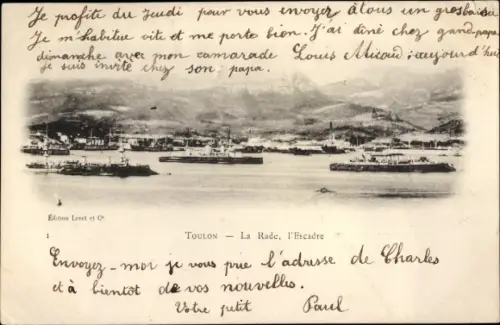 Je profite du Jeudi pour vous envoyez à tous un gros baiser
Je m'habitue vite et me porte bien. J'ai diné chez grand-papa
dimanche avec mon camarade Louis Missud; aujourd'hui
je suis invité chez son papa.
Éditions Levet et Cie
1
TOULON — La Rade, l'Escadre
Envoyez-moi je vous prie l'adresse de Charles
et à bientôt de vos nouvelles.
Votre petit Paul